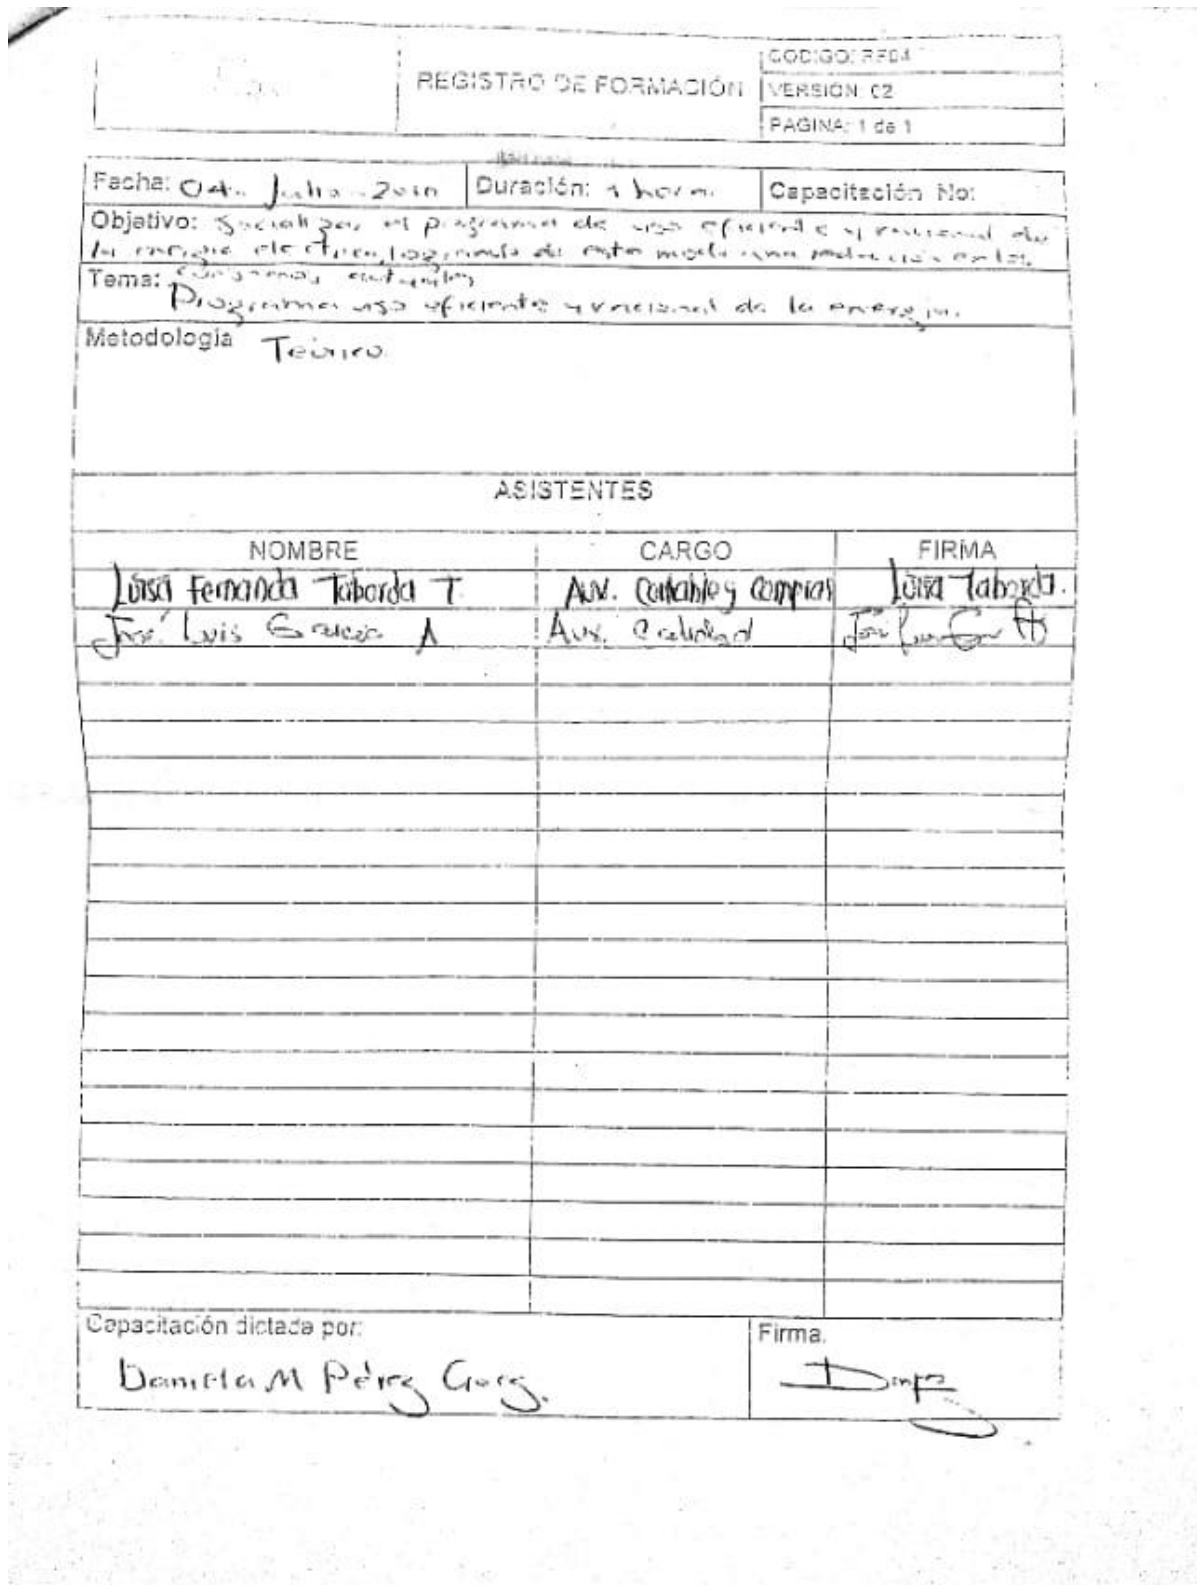 REGISTRO DE FORMACIÓN
CODIGO: RF04
VERSIÓN: 02
PAGINA: 1 de 1
Fecha: 04. Julio - 2010 Duración: 1 hora. Capacitación No:
Objetivo: Socializar el programa de uso eficiente y racional de
la energia electrica, logrando de este modo una reducción en los
Tema: consumos actuales
Programa uso eficiente y racional de la energia.
Metodología Teórico.
ASISTENTES
NOMBRE CARGO FIRMA
Luisa Fernanda Taborda T. Aux. Contable y compras Luisa Taborda.
José Luis Garcia A Aux. Calidad
Capacitación dictada por: Firma.
Daniela M Pérez